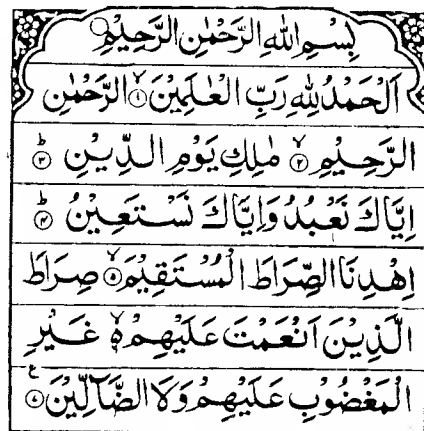 بِسْمِ اللهِ الرَّحْمٰنِ الرَّحِيْمِ
اَلْحَمْدُ لِلّٰهِ رَبِّ الْعٰلَمِيْنَ ۙ﴿۱﴾ الرَّحْمٰنِ
الرَّحِيْمِ ۙ﴿۲﴾ مٰلِكِ يَوْمِ الدِّيْنِ ؕ﴿۳﴾
اِيَّاكَ نَعْبُدُ وَاِيَّاكَ نَسْتَعِيْنُ ؕ﴿۴﴾
اِهْدِنَا الصِّرَاطَ الْمُسْتَقِيْمَ ۙ﴿۵﴾ صِرَاطَ
الَّذِيْنَ اَنْعَمْتَ عَلَيْهِمْ ۙ۬ۦ غَيْرِ
الْمَغْضُوْبِ عَلَيْهِمْ وَلَا الضَّآلِّيْنَ ﴿۷﴾ ع